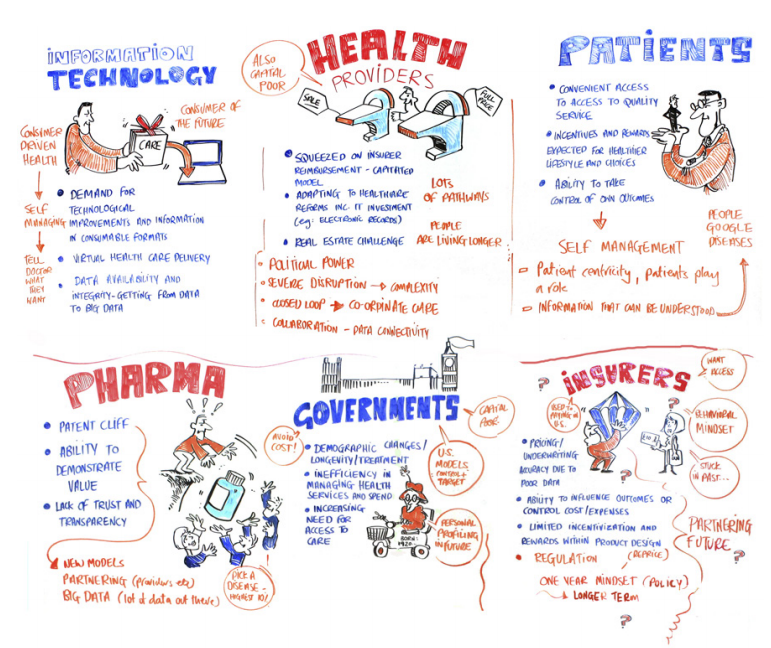 INFORMATION
TECHNOLOGY
CONSUMER OF
THE FUTURE
CONSUMER
DRIVEN
HEALTH
CARE
SELF
MANAGING
TELL
DOCTOR
WHAT
THEY
WANT
DEMAND FOR
TECHNOLOGICAL
IMPROVEMENTS AND INFORMATION
IN CONSUMABLE FORMATS
VIRTUAL HEALTH CARE DELIVERY
DATA AVAILABILITY AND
INTEGRITY-GETTING FROM DATA
TO BIG DATA
HEALTH
PROVIDERS
ALSO
CAPITAL
POOR
SALE
FULL
PRICE
SQUEEZED ON INSURER
REIMBURSEMENT - CAPITATED
MODEL
ADAPTING TO HEALTHCARE
REFORMS INC IT INVESTMENT
(eg: ELECTRONIC RECORDS)
REAL ESTATE CHALLENGE
LOTS
OF PATHWAYS
PEOPLE
ARE LIVING LONGER
POLITICAL POWER
SEVERE DISRUPTION → COMPLEXITY
CLOSED LOOP → CO-ORDINATE CARE
COLLABORATION - DATA CONNECTIVITY
PATIENTS
CONVENIENT ACCESS
TO ACCESS TO QUALITY
SERVICE
INCENTIVES AND REWARDS
EXPECTED FOR HEALTHIER
LIFESTYLE AND CHOICES
ABILITY TO TAKE
CONTROL OF OWN OUTCOMES
PEOPLE
GOOGLE
DISEASES
SELF MANAGEMENT
Patient centricity, patients play
a role
INFORMATION THAT CAN BE UNDERSTOOD
PHARMA
PATENT CLIFF
ABILITY TO
DEMONSTRATE
VALUE
LACK OF TRUST AND
TRANSPARENCY
NEW MODELS
PARTNERING (providers etc)
BIG DATA (lot of data out there)
PICK A
DISEASE -
HIGHEST ID!
GOVERNMENTS
CAPITAL
POOR
AVOID
COST!
DEMOGRAPHIC CHANGES/
LONGEVITY/TREATMENT
INEFFICIENCY IN
MANAGING HEALTH
SERVICES AND SPEND
INCREASING
NEED FOR
ACCESS TO
CARE
U.S.
MODELS
CONTROL +
TARGET
PERSONAL
PROFILING
IN FUTURE
BORN:
1920
INSURERS
WANT
ACCESS
USED TO
PAYING IN
U.S.
BEHAVIORAL
MINDSET
STUCK
IN PAST...
PRICING/
UNDERWRITING
ACCURACY DUE TO
POOR DATA
ABILITY TO INFLUENCE OUTCOMES OR
CONTROL COST/EXPENSES
LIMITED INCENTIVIZATION AND
REWARDS WITHIN PRODUCT DESIGN
REGULATION (REPRICE)
PARTNERING
FUTURE
ONE YEAR MINDSET (POLICY)
LONGER TERM